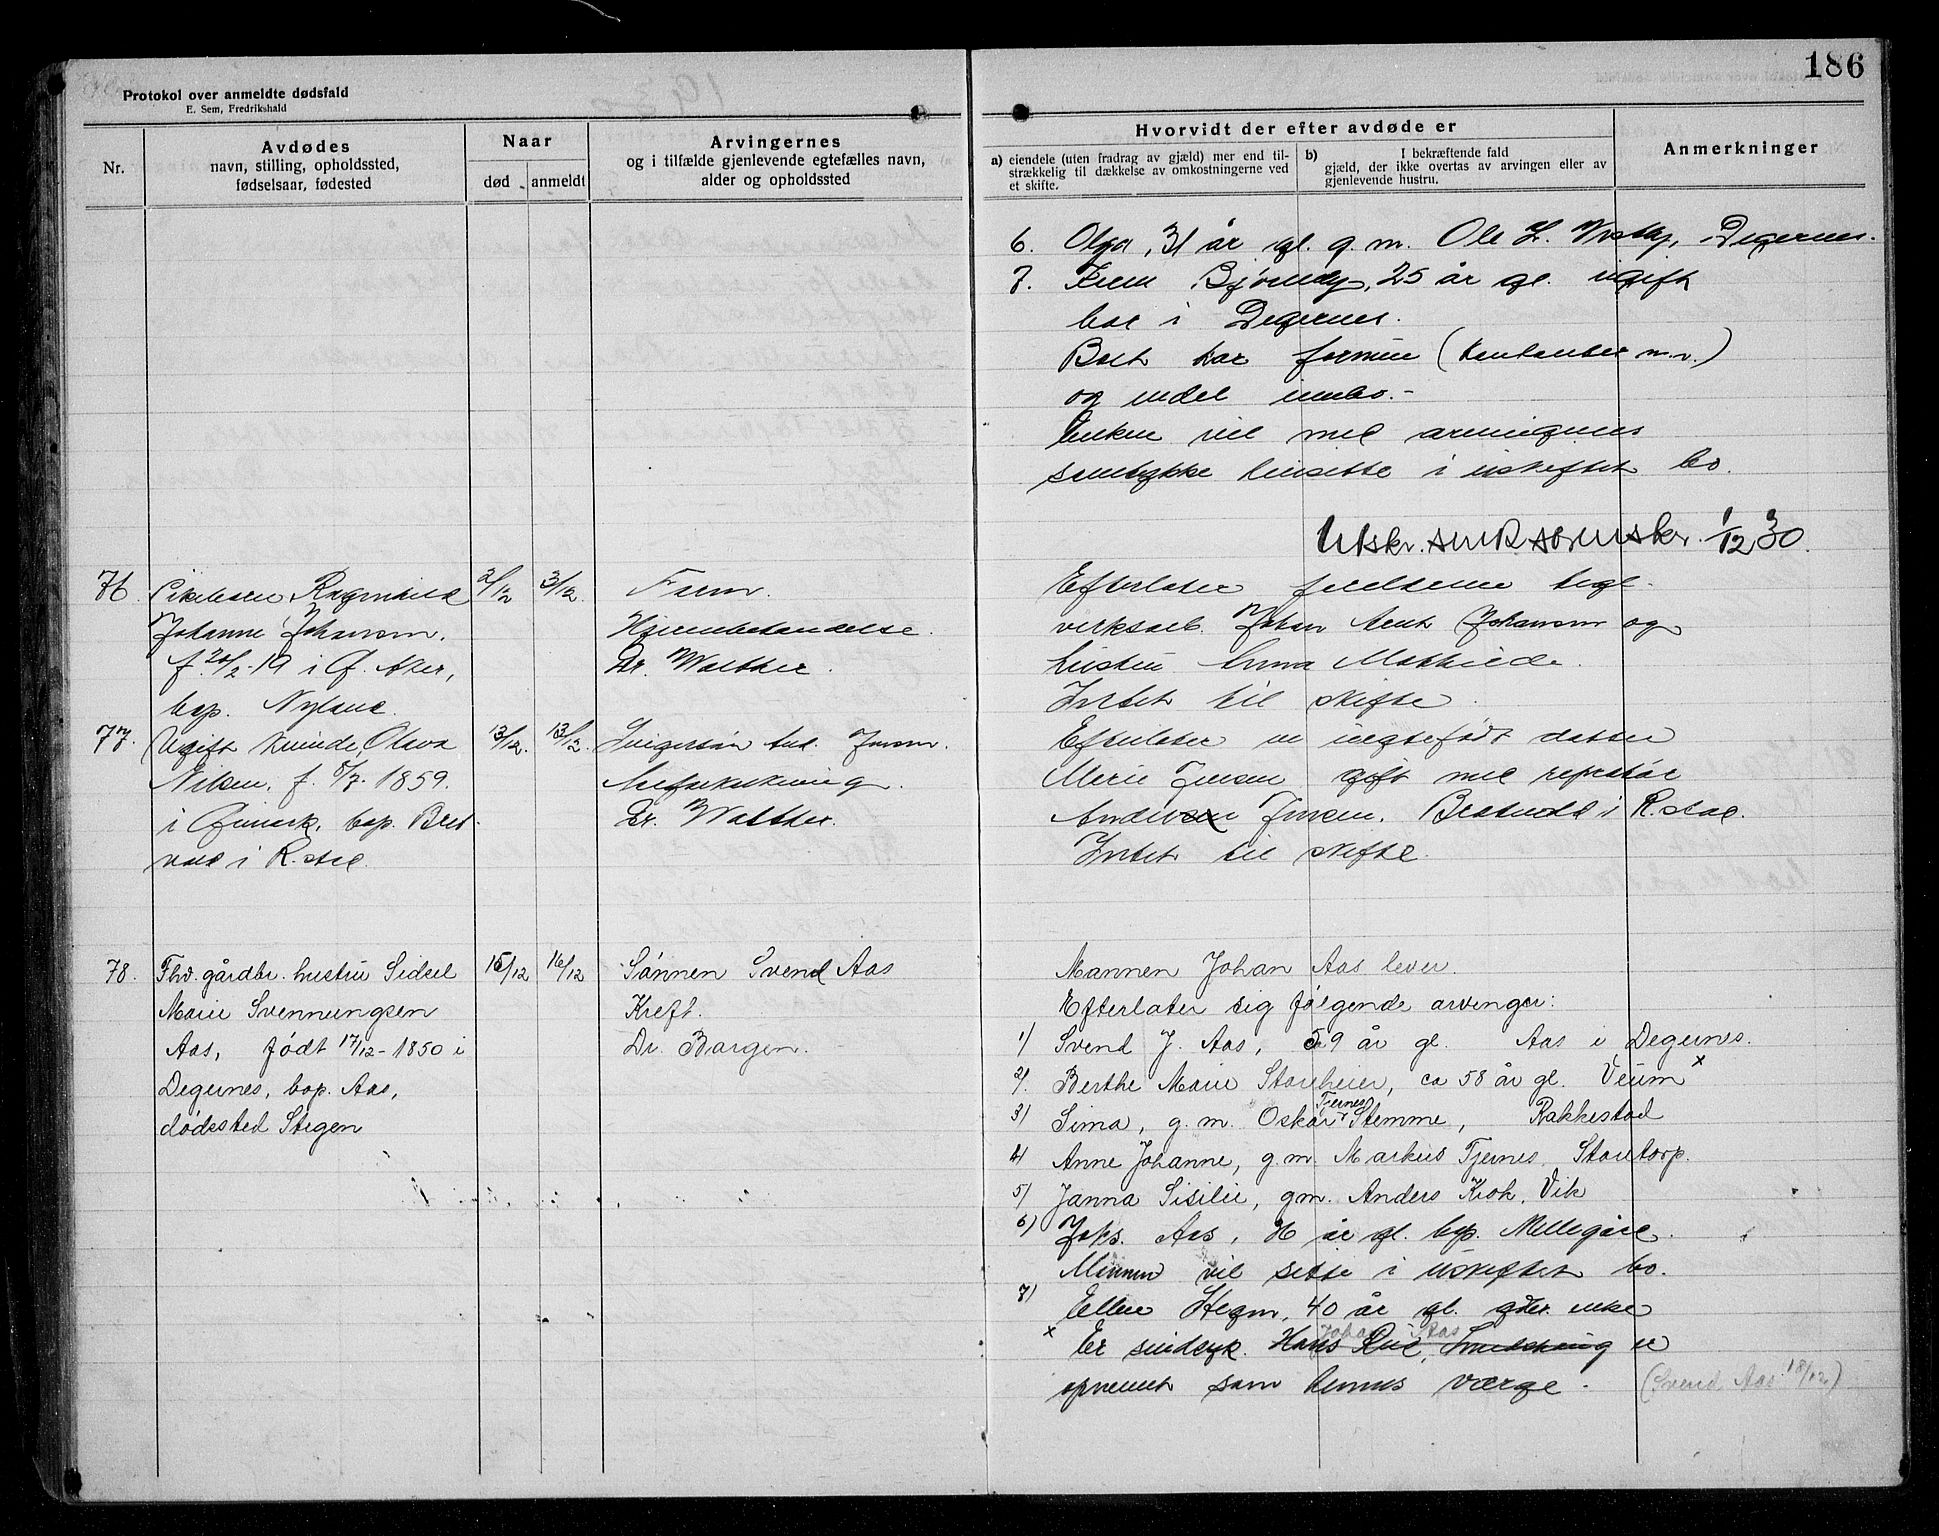 186
Protokol over anmeldte dødsfald
E. Sem, Fredrikshald
Nr.
Avdødes
navn, stilling, opholdssted,
fødselsaar, fødested
Naar
død
anmeldt
Arvingernes
og i tilfælde gjenlevende egtefælles navn,
alder og opholdssted
Hvorvidt der efter avdøde er
a) eiendele (uten fradrag av gjæld) mer end til-
strækkelig til dækkelse av omkostningerne ved
et skifte.
b) I bekræftende fald
gjæld, der ikke overtas av arvingen eller av
gjenlevende hustru.
Anmerkninger
6. Olga, 31 år gl. g.m. Ole L. Degernes.
7. 25 år gl. ugift
bor i Degernes.
Boet har formue (Kontanter m.v.)
og endel innbo.-
Enken vil med arvingenes
samtykke hensitte i uskiftet bo.
Utskr. 1/12 30.
76. Pikebarn Ragnhild
Johanne Johansen,
f. 20/2-19 i Ø. Aker,
bop. Nyland.
2/12
3/12.
Faren.
Hjernebetendelse.
Dr. Walther.
Efterlater foreldrene tegl-
verksarb. Johan Arnt Johansen og
hustru Anna Mathilde.
Intet til skifte.
77. Ugift kvinde Olava
Nilsen, f. 5/7. 1859.
i Ømark, bop. Brat-
vold i R.stad.
13/12.
13/12.
Svigersøn And. Jensen.
Arefor
Dr. Walther.
Efterlater en uegtefødt datter
Marie Jensen gift med repratør
Anders Jensen, Bratvold i R.stad.
Intet til skifte.
78. Fhv. gårdbr. hustru Sidsel
Marie Svennungsen
Aas, født 17/12-1850 i
Degernes, bop. Aas,
dødssted Stegen
15/12
16/12
Sønnen Svend Aas
Kreft.
Dr. Bargen.
Mannen Johan Aas lever.
Efterlater sig følgende arvinger:
1) Svend J. Aas, 59 år gl. Aas i Degernes.
2) Berthe Marie Storeheier, ca 58 år gl. Veum x
3) Sima, g.m. Oskar Tjernes Stemme, Rakkestad
4) Anne Johanne, g.m. Markus Tjernes, Storetorp.
5) Janna Sisilie, gm. Anders Krok, Vik
6) Johs. Aas, år gl. bop. Mellegård.
Mannen vil sitte i uskiftet bo.
7) Ellen Hegn, 40 år gl. gdbr. enke
x Er sindsyk. Hans Rud, Johan Aas er
opnevnt som hennes værge. (Svend Aas 18/12)